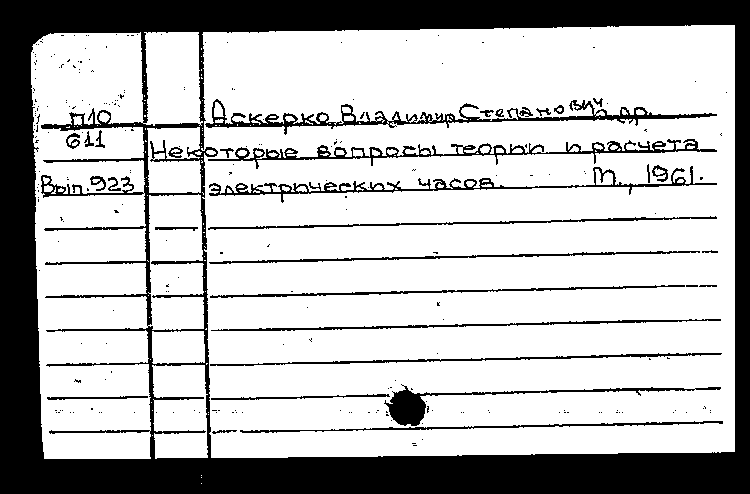 П10 Аскерко, Владимир Степанович и др.
611 Некоторые вопросы теории и расчета
Вып. 923 электрических часов. М., 1961.